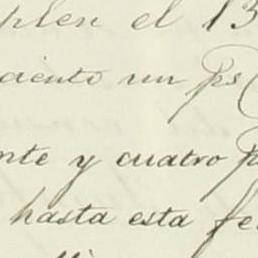 plen el 13
ciento un ps
nte y cuatro p
hasta esta fe